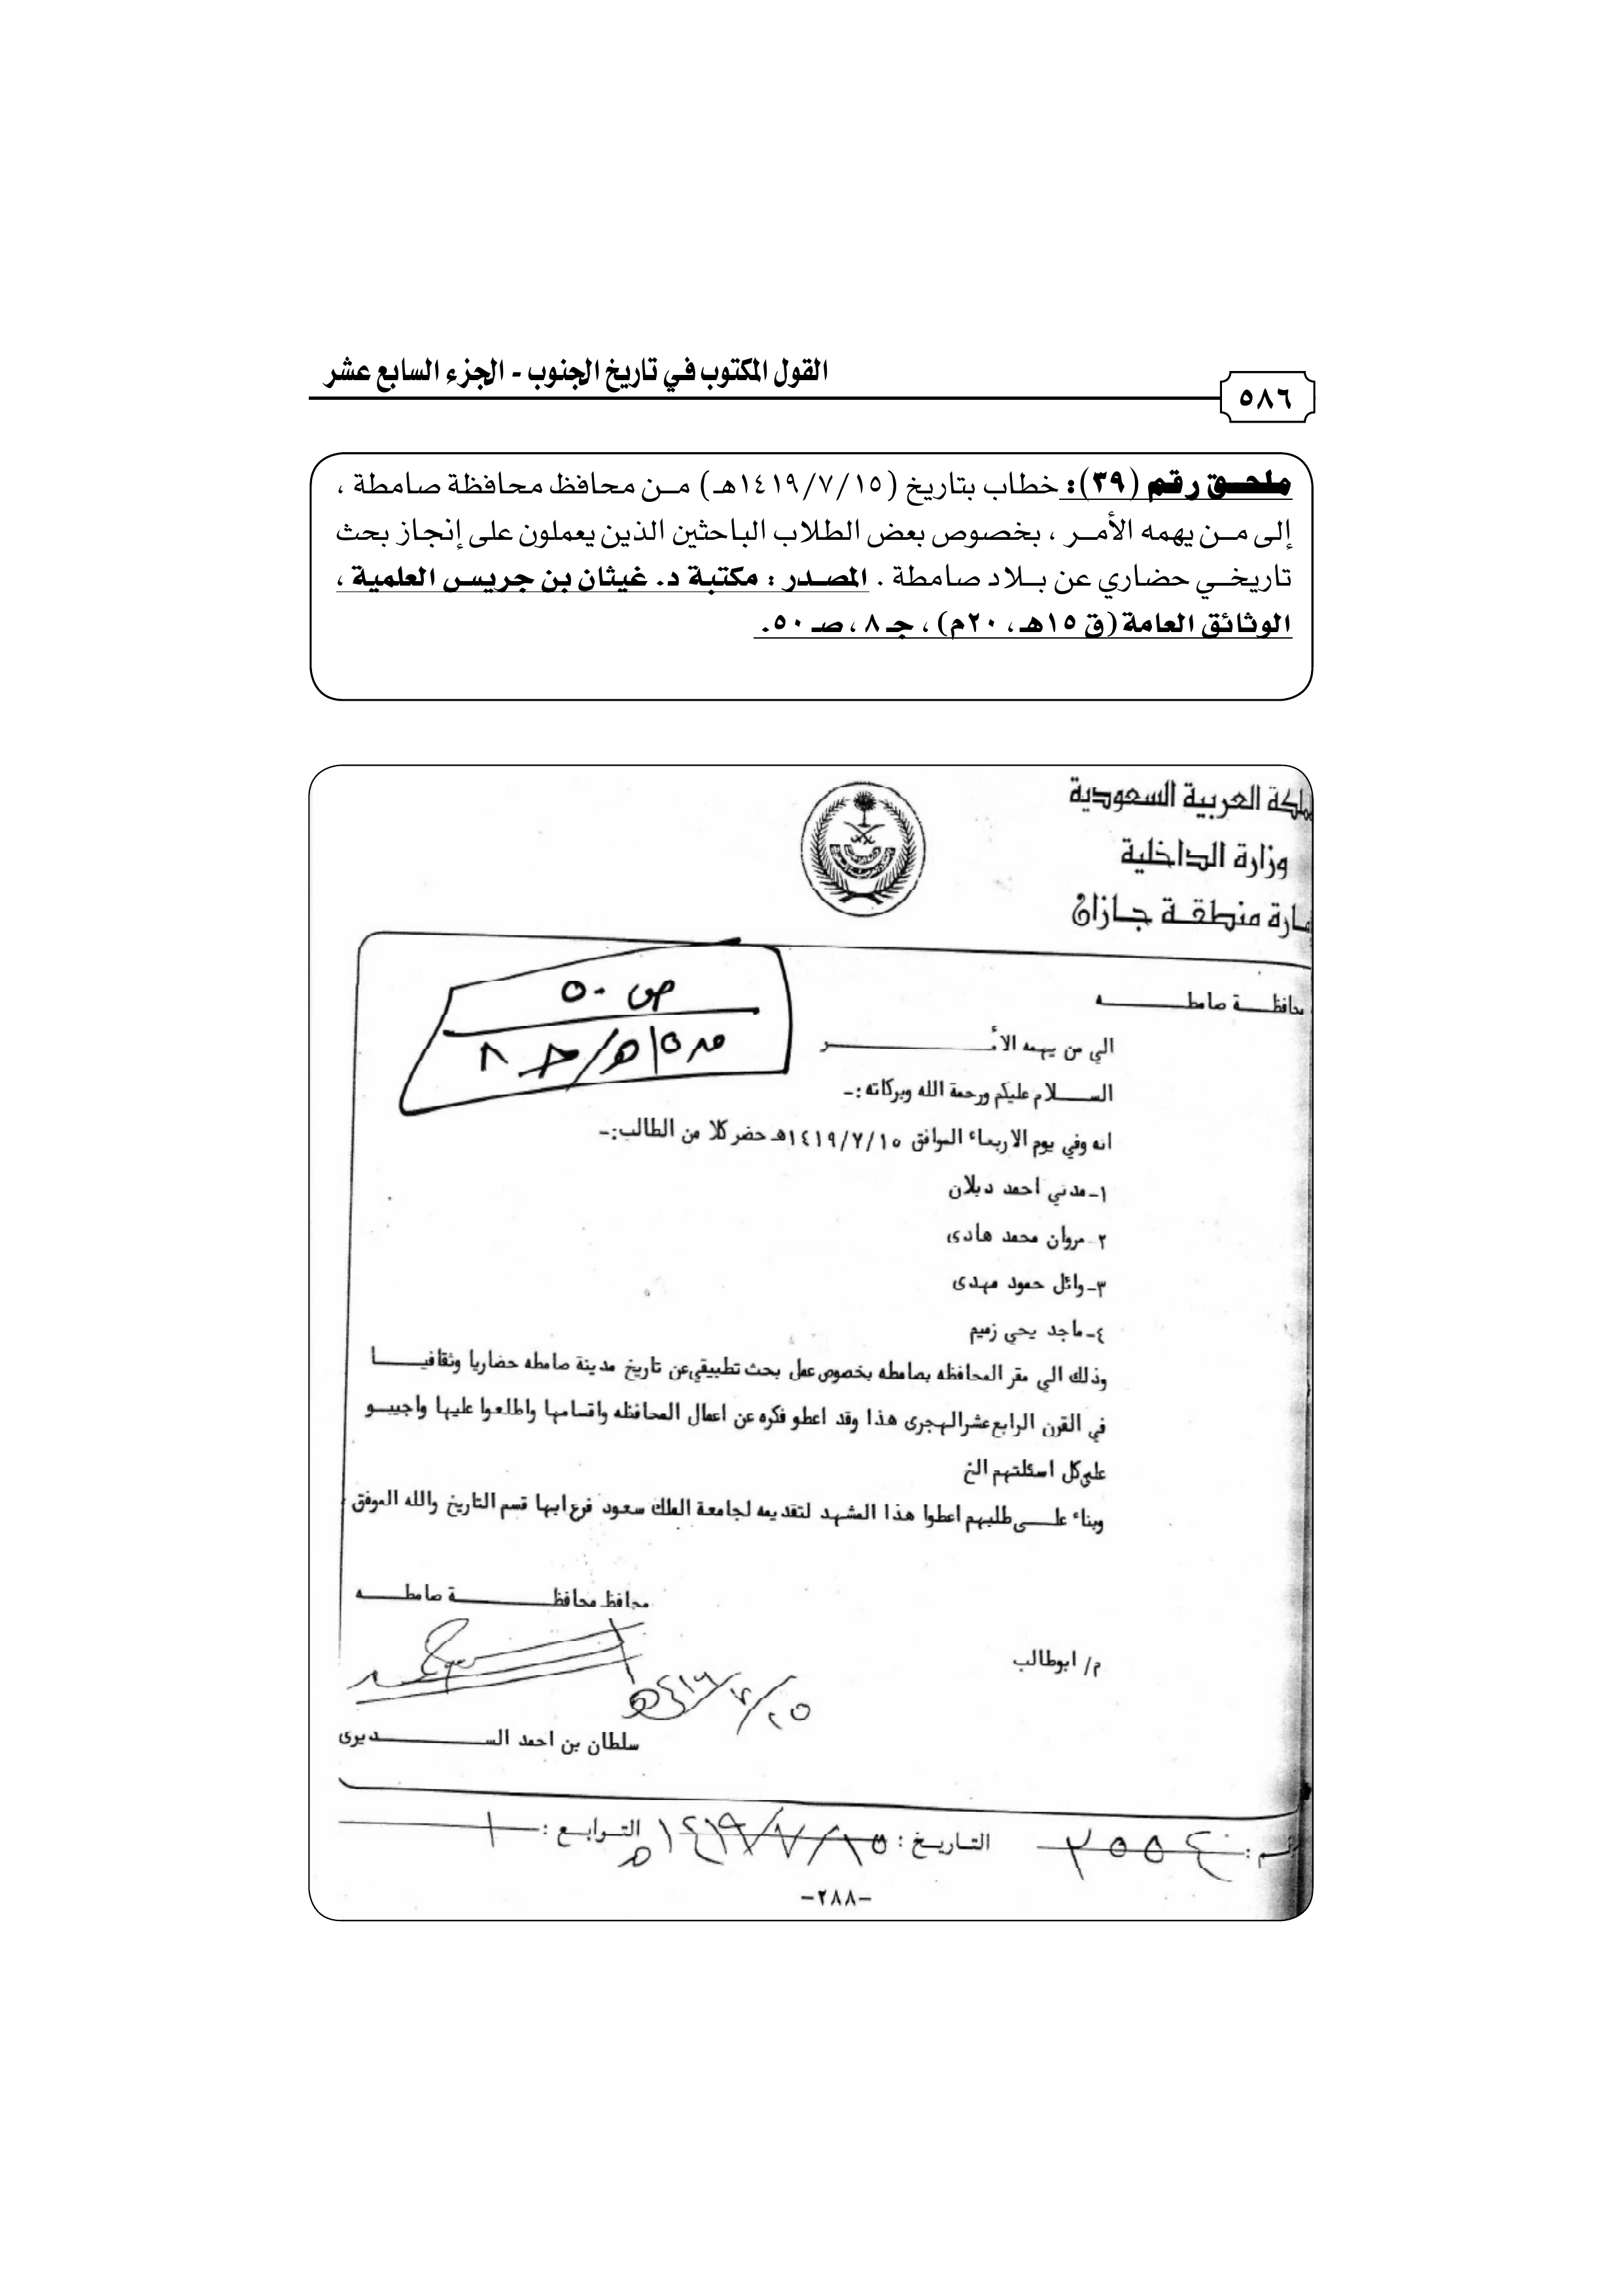 القول المكتوب في تاريخ الجنوب - الجزء السابع عشر
٥٨٦
ملحـــق رقم (٣٩): خطاب بتاريخ (١٤١٩/٧/١٥هـ) مــن محافظ محافظة صامطة ،
إلى مــن يهمه الأمــر ، بخصوص بعض الطلاب الباحثين الذين يعملون على إنجاز بحث
تاريخــي حضاري عن بــلاد صامطة . المصــدر : مكتبة د. غيثان بن جريس العلمية ،
الوثائق العامة (ق ١٥هـ ، ٢٠م) ، جـ ٨ ، صـ ٥٠.
ملكة العربية السعودية
وزارة الداخلية
مارة منطقــة جــازان
محافظــــة صامطــــــــه
ص ٥٠
ق ١٥هـ/جـ ٨
الي من يهمه الأمــــــــــــر
الســــلام عليكم ورحمة الله وبركاته :-
انه وفي يوم الاربعاء الموافق ١٤١٩/٧/١٥هـ حضر كلا من الطالب:-
١-مدني احمد دبلان
٢-مروان محمد هادى
٣-وائل حمود مهدى
٤-ماجد يحي زميم
وذلك الي مقر المحافظه بصامطه بخصوص عمل بحث تطبيقي عن تاريخ مدينة صامطه حضاريا وثقافيــــا
في القرن الرابع عشر الهجرى هذا وقد اعطو فكره عن اعمال المحافظه واقسامها واطلعوا عليها واجيبــو
علي كل اسئلتهم الخ
وبناء علــــى طلبهم اعطوا هذا المشهد لتقديمه لجامعة الملك سعود فرع ابها قسم التاريخ والله الموفق ،
محافظ محافظــــــــــــة صامطــــــه
م/ ابوطالب
سلطان بن احمد الســــــــــديرى
التاريـــخ : ١٤١٩/٧/١٥هـ
التــوابــع : ١
-٢٨٨-